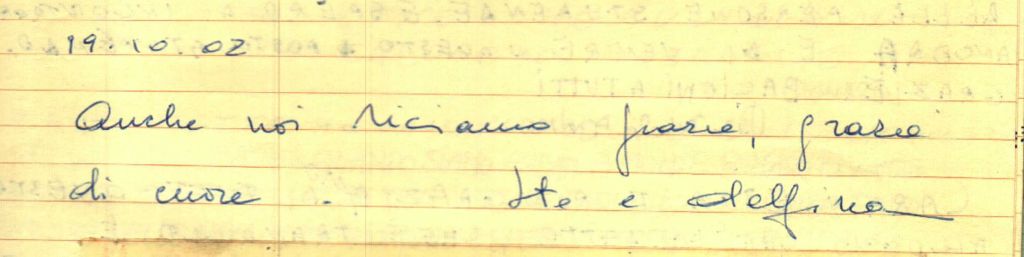 19.10.02
Anche noi diciamo grazie, grazie
di cuore. Ste e Delfina